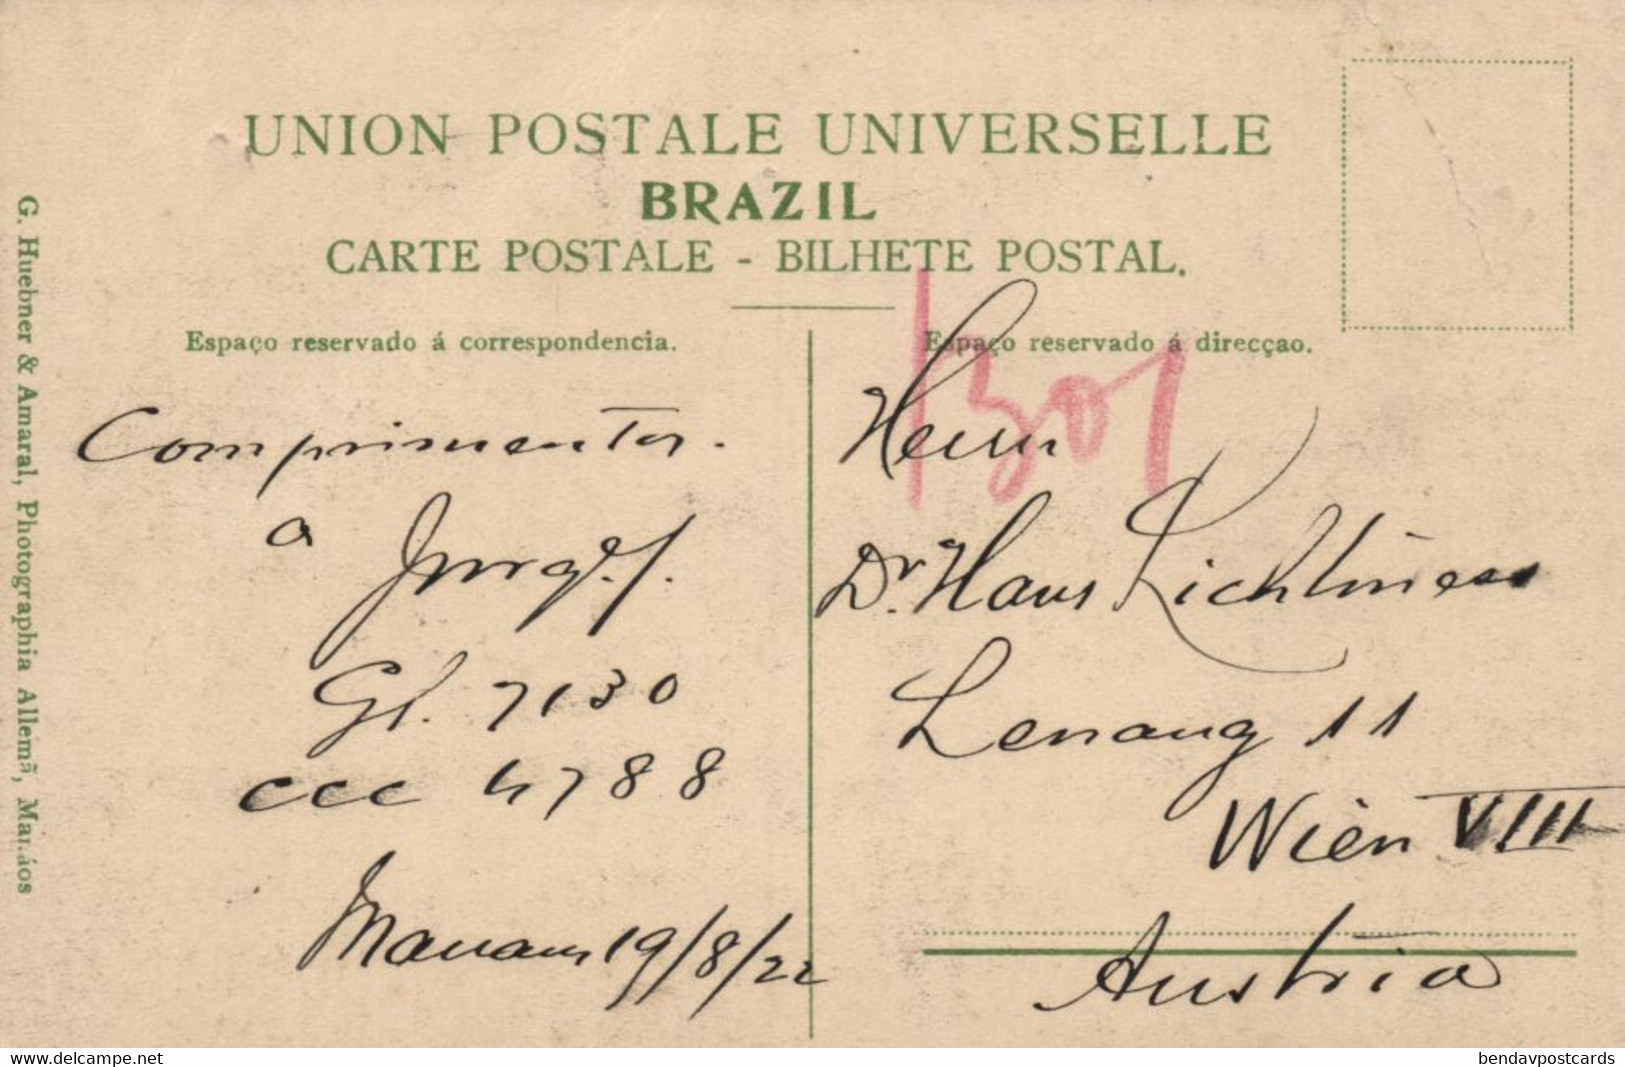 UNION POSTALE UNIVERSELLE
BRAZIL
CARTE POSTALE - BILHETE POSTAL.
Espaço reservado á correspondencia.
Espaço reservado á direcçao.
G. Huebner & Amaral, Photographia Allemã, Manáos
Comprimentos.
a
Gl. 7130
ccc 4788
Manaus 19/8/22
1301
Herrn
Dr. Hans
Lenaug 11
Wien VIII
Austria
delcampe.net
bendavpostcards